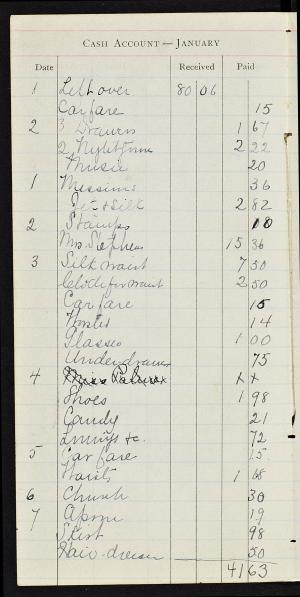 CASH ACCOUNT — JANUARY
Date Received Paid
1 Left over 80 06
Car fare 15
2 3 Drawers 1 67
2 Nightgowns 2 22
Music 20
1 Missions 36
Jet & Silk 2 82
2 Stamps 10
Mrs. Stephens 15 36
3 Silk waist 7 50
Cloth for waist 2 50
Car fare 15
14
Glasses 1 00
Underdrawers 75
4 x x
Shoes 1 98
Candy 21
Linings &c. 72
5 Car fare 15
Waists 1 68
6 Church 30
7 Apron 19
Skirt 98
Hair-dresser 50
41 63